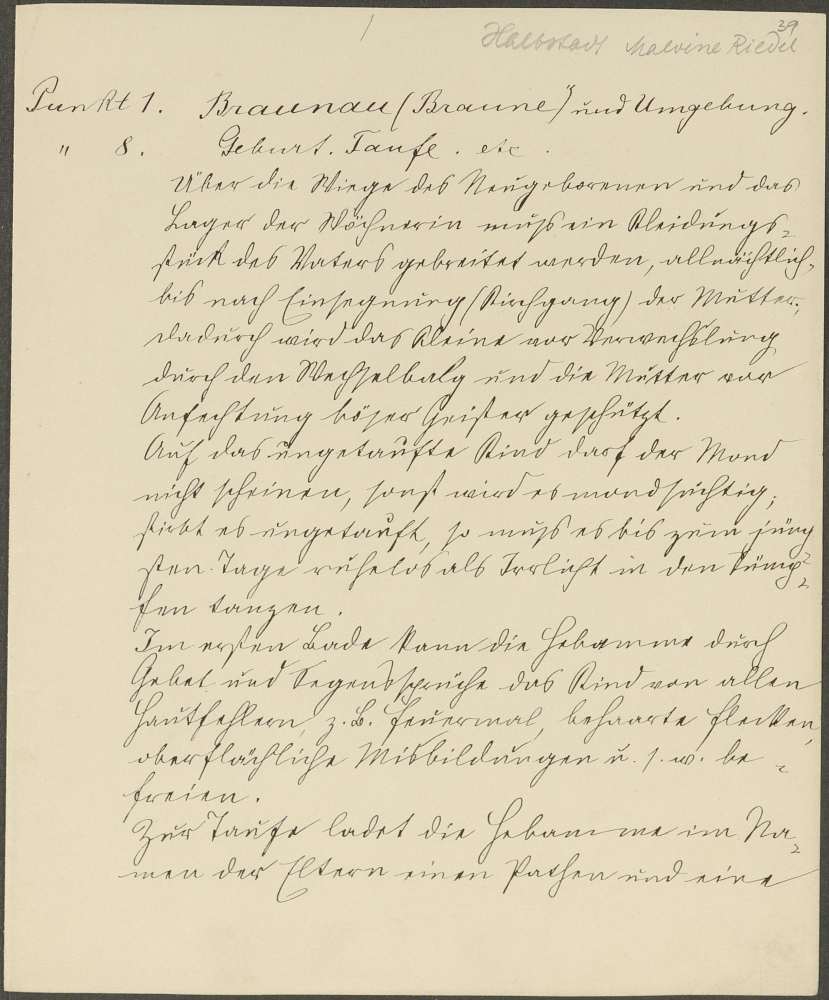 39
Halbstadt Malvine Riedel
Punkt 1. Braunau (Braune") und Umgebung.
" 8. Geburt. Taufe. etc.
Über die Wiege des Neugeborenen und das
Lager der Wöchnerin muß ein Kleidungs-
stück des Vaters gebreitet werden, allnächtlich,
bis nach Einsegnung (Kirchgang) der Mutter;
dadurch wird das Kleine vor Verwechslung
durch den Wechselbalg und die Mutter vor
Anfechtung böser Geister geschützt.
Auf das ungetaufte Kind darf der Mond
nicht scheinen, sonst wird es mondsüchtig;
stirbt es ungetauft, so muß es bis zum jüng-
sten Tage ruhelos als Irrlicht in den Sümp-
fen tanzen.
Im ersten Bade kann die Hebamme durch
Gebet und Segenssprüche das Kind von allen
Hautfehlern, z. B. Feuermal, behaarte Flecken,
oberflächliche Misbildungen u. s. w. be-
freien.
Zur Taufe ladet die Hebamme im Na-
men der Eltern einen Pathen und eine